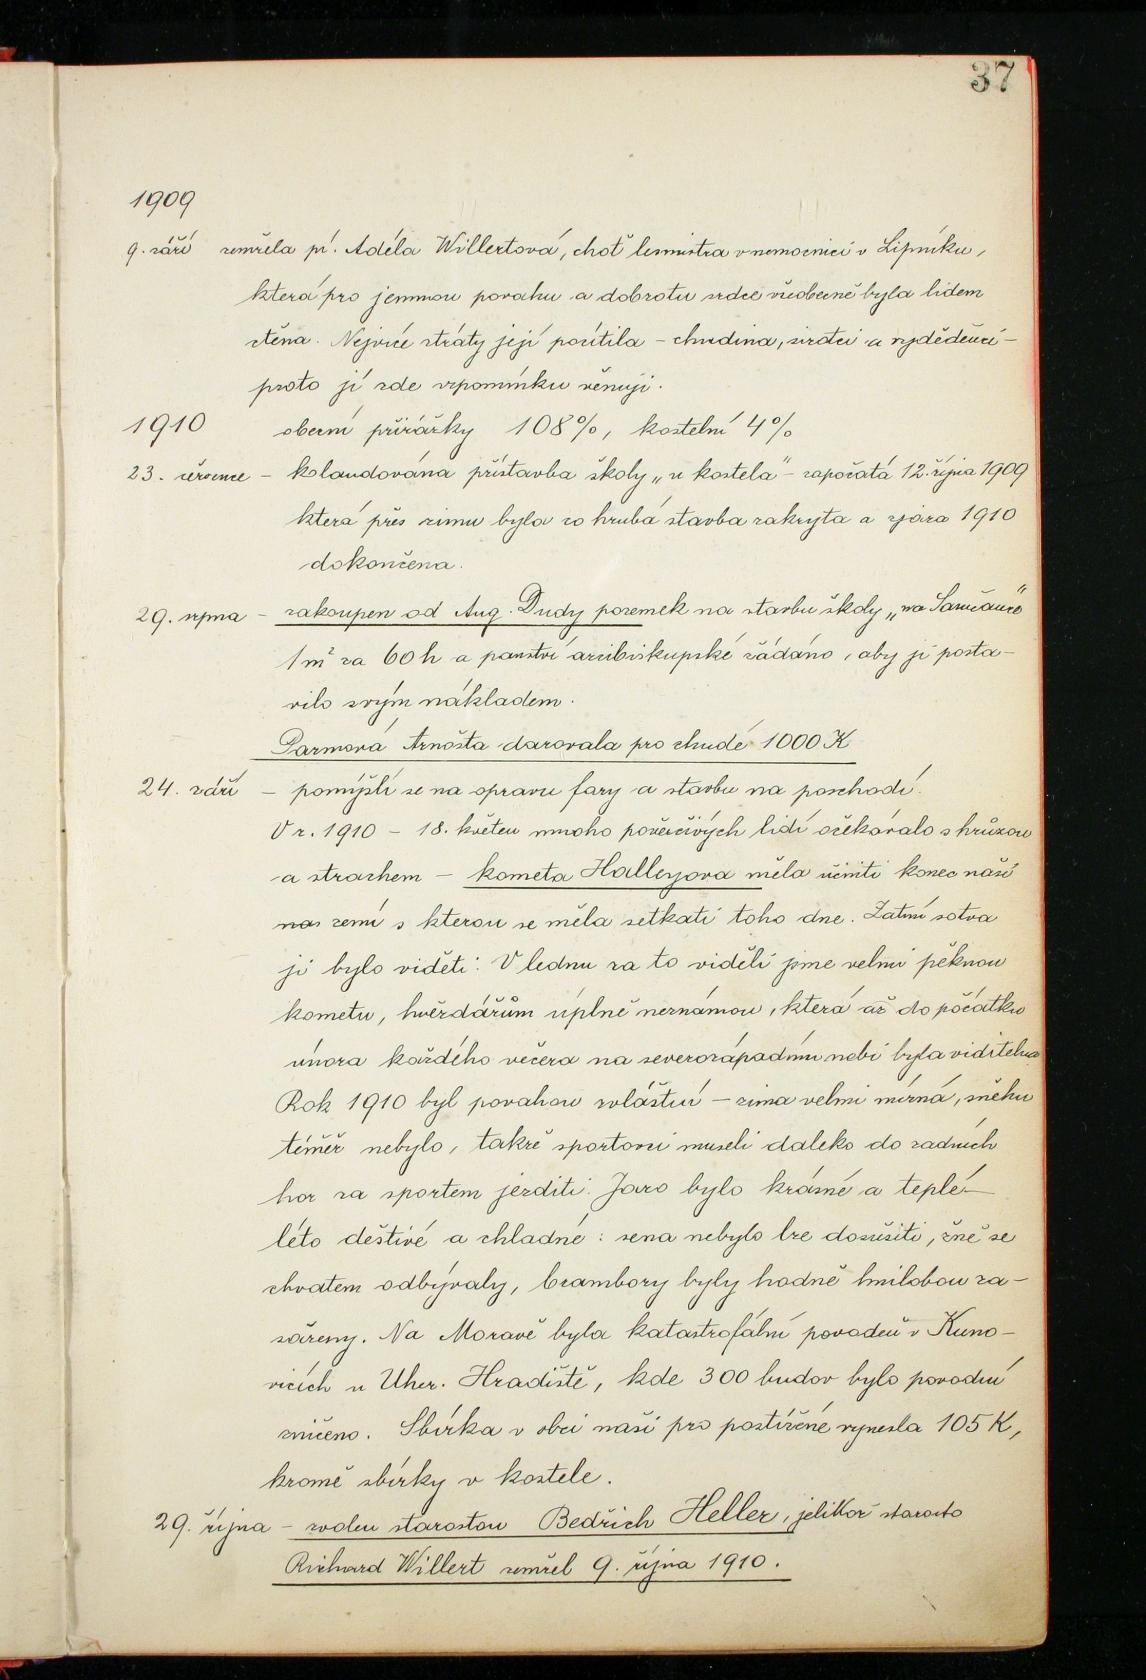 37
1909
9. září zemřela pí. Adéla Willertová, choť lesmistra v nemocnici v Lipníku,
která pro jemnou povahu a dobrotu srdce všeobecně byla lidem
ctěna. Nejvíce ztráty její pocítila – chudina, sirotci a vydědenci –
proto jí zde vzpomínku věnuji.
1910 obecní přirážky 108%, kostelní 4%
23. července – kolaudována přístavba školy „u kostela" – započatá 12. října 1909
která přes zimu byla co hrubá stavba zakryta a zjara 1910
dokončena.
29. srpna – zakoupen od Aug. Dudy pozemek na stavbu školy „na
1 m² za 60 h a panství arcibiskupské žádáno, aby ji posta-
vilo svým nákladem.
Parmová Arnošta darovala pro chudé 1000 K
24. září – pomýšlí se na opravu fary a stavbu na poschodí.
V r. 1910 – 18. květen mnoho pověrčivých lidí očekávalo s hrůzou
a strachem – kometa Halleyova měla učiniti konec naší
nas zemi s kterou se měla setkati toho dne. Zatím sotva
ji bylo viděti. V lednu za to viděli jsme velmi pěknou
kometu, hvězdářům úplně neznámou, která až do počátku
února každého večera na severozápadním nebi byla viditelna
Rok 1910 byl povahou zvláštní – zima velmi mírná, sněhu
téměř nebylo, takže sportovci museli daleko do zadních
hor za sportem jezditi. Jaro bylo krásné a teplé –
léto deštivé a chladné: sena nebylo lze dosušiti, žně se
chvatem odbývaly, brambory byly hodně hnilobou za-
sáženy. Na Moravě byla katastrofální povodeň v Kuno-
vicích u Uher. Hradiště, kde 300 budov bylo povodní
zničeno. Sbírka v obci naší pro postižené vynesla 105 K,
kromě sbírky v kostele.
29. října – zvolen starostou Bedřich Heller, jelikož starosta
Richard Willert zemřel 9. října 1910.